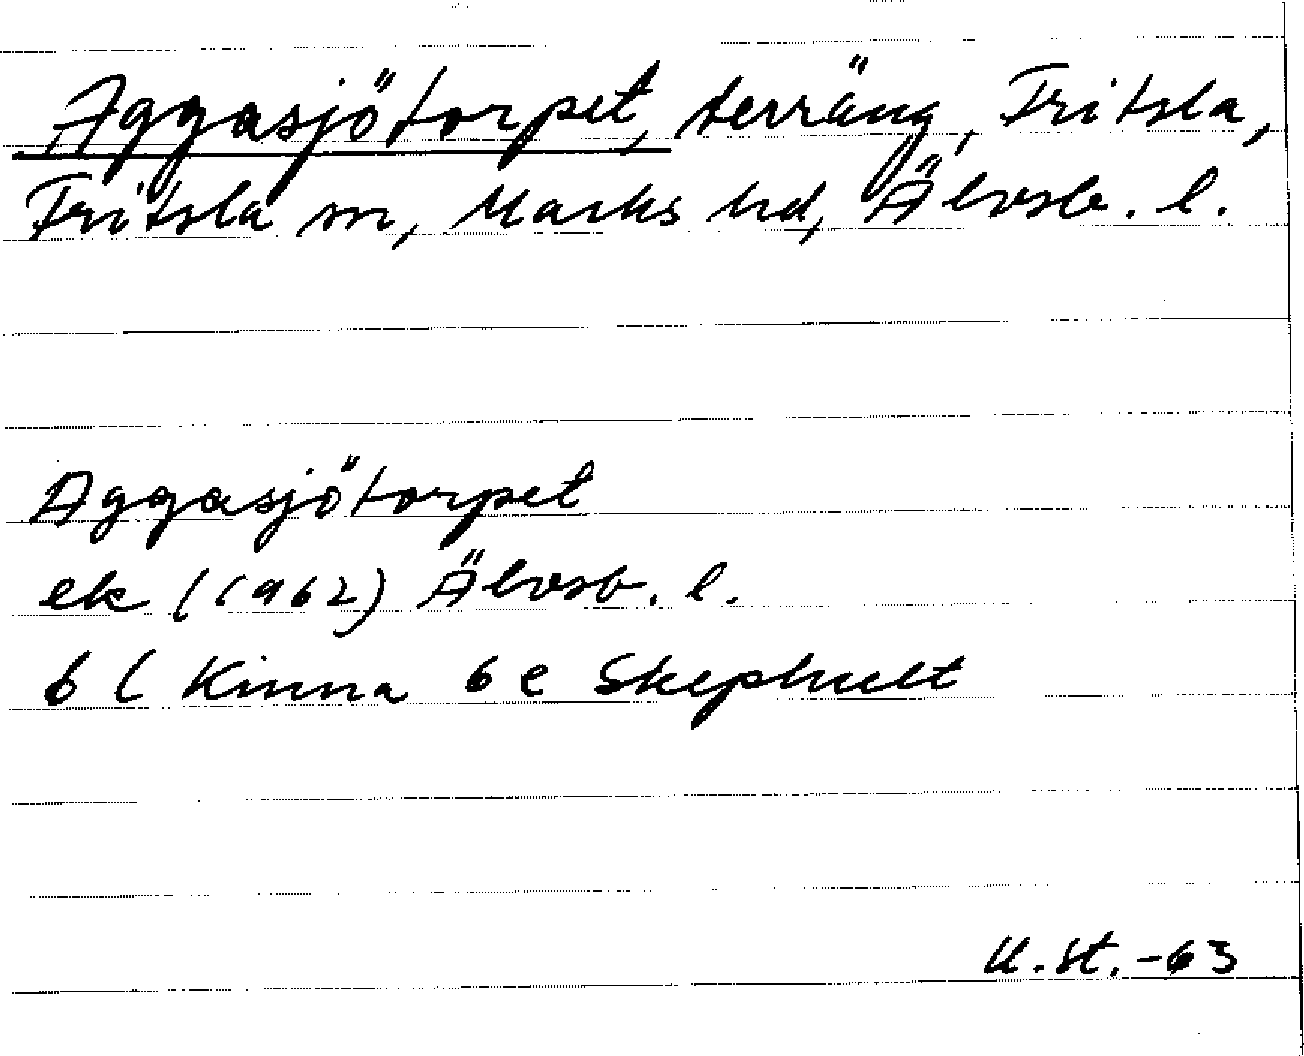 Aggasjötorpet, terräng, Fritsla,
Fritsla sn, Marks hd, Älvsb. l.
Aggasjötorpet
ek (1962) Älvsb. l.
6 Kinna 6 e Skephult
U.St. -63